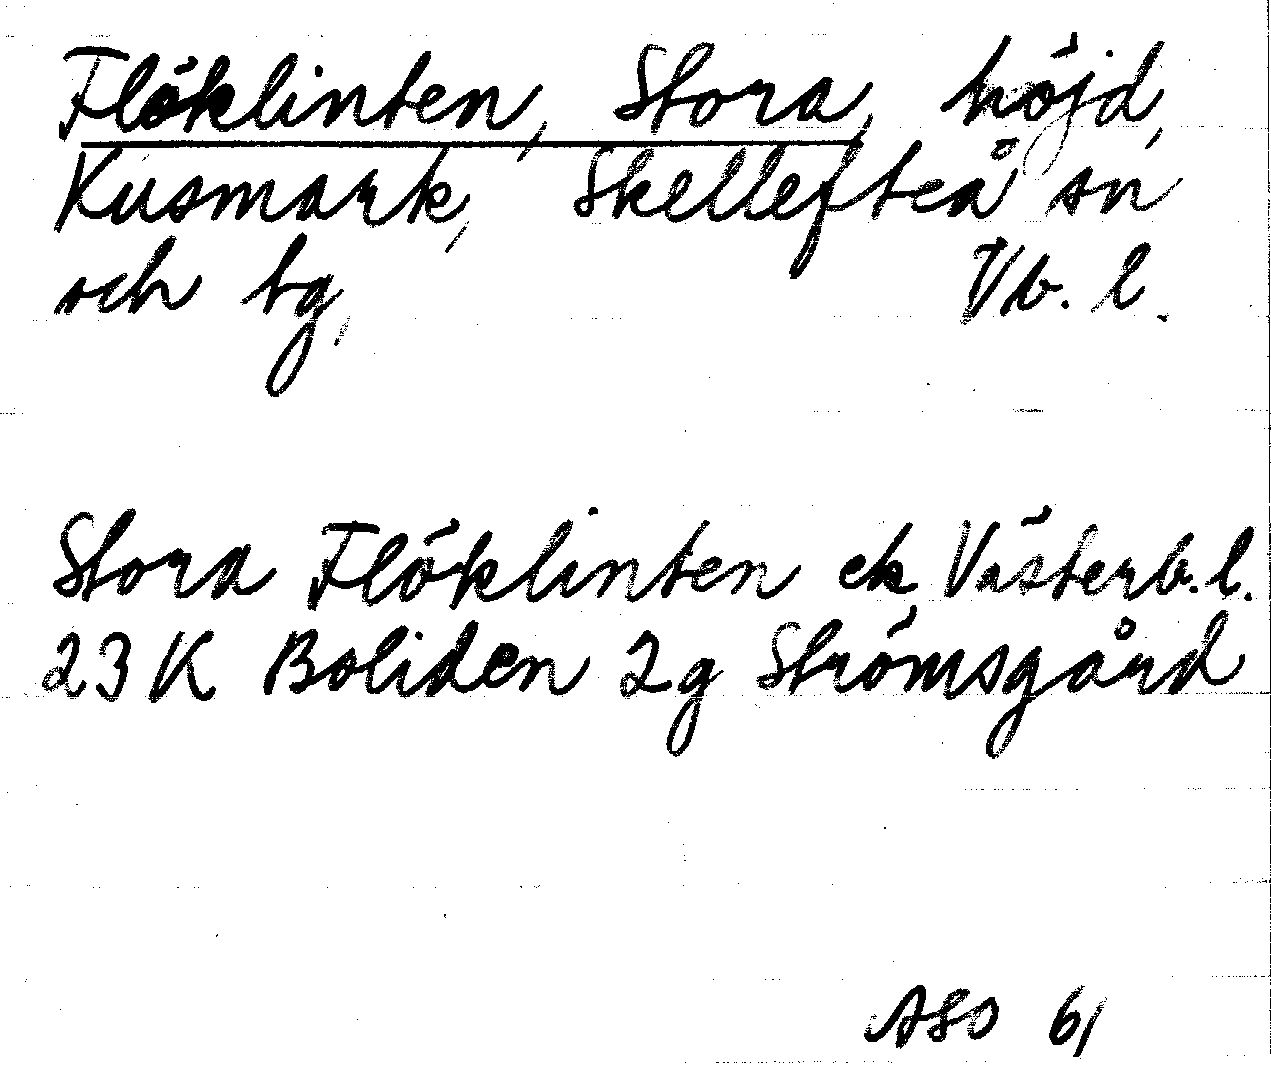 Flöklinten, Stora, höjd,
Kusmark, Skellefteå sn
och tg, Vb. l.
Stora Flöklinten ek Västerb. l.
23 K Boliden 2g Strömsgård
ASO 61